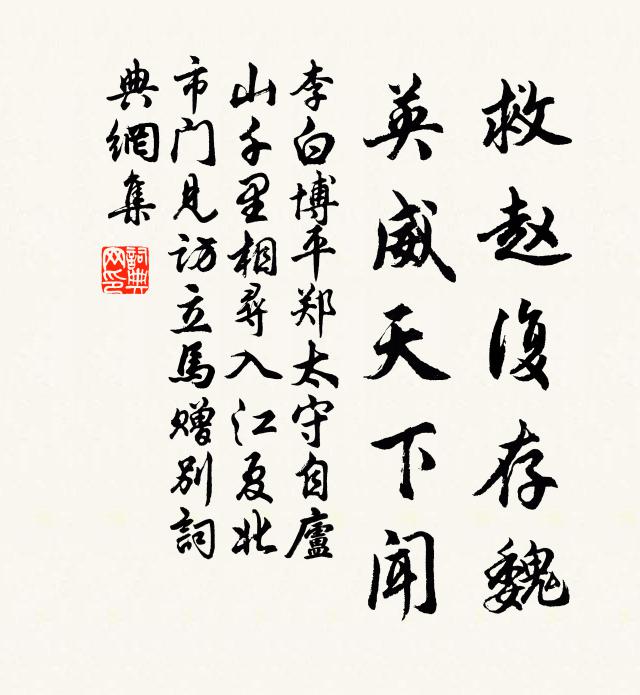 救赵復存魏
英威天下闻
李白博平郑太守自廬
山千里相尋入江夏北
市门见访立馬赠别詞
典網集
詞典网印